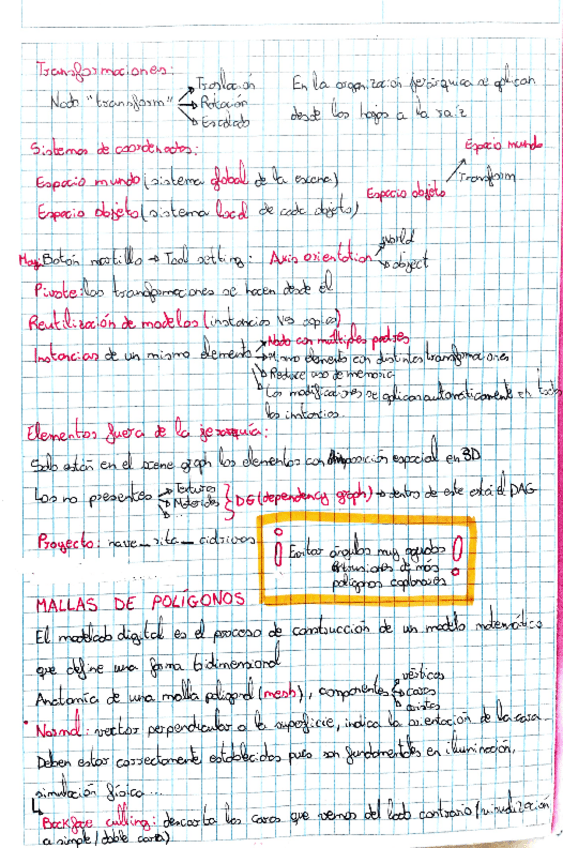 Transformaciones:
Nodo "transform" → Traslación
→ Rotación
→ Escalado
En la organización jerárquica se aplican
desde las hojas a la raíz
Sistemas de coordenadas:
Espacio mundo (sistema global de la escena)
Espacio objeto (sistema local de cada objeto)
Espacio mundo
Transform
Espacio objeto
Botón martillo → Tool setting: Axis orientation → world
→ object
Pivote: las transformaciones se hacen desde él
Reutilización de modelos (instancias vs copias)
Instancias de un mismo elemento → Nodo con múltiples padres
→ Mismo elemento con distintas transformaciones
→ Reduce uso de memoria
→ Las modificaciones se aplican automáticamente en todas
las instancias.
Elementos fuera de la jerarquía:
Solo están en el scene graph los elementos con disposición espacial en 3D
Los no presentes → Texturas
→ Materiales
→ ...
} DG (dependency graph) → dentro de este está el DAG
Proyecto: nave_rita_
Evitar ángulos muy agudos
de más
polígonos coplanares
MALLAS DE POLÍGONOS
El modelado digital es el proceso de construcción de un modelo matemático
que define una forma bidimensional
Anatomía de una malla poligonal (mesh), componentes → vértices
→ caras
→ aristas
• Normal: vector perpendicular a la superficie, indica la orientación de la cara.
Deben estar correctamente establecidas pues son fundamentales en iluminación,
simulación física...
Backface culling: descarta las caras que vemos del lado contrario (visualización
a simple / doble cara)